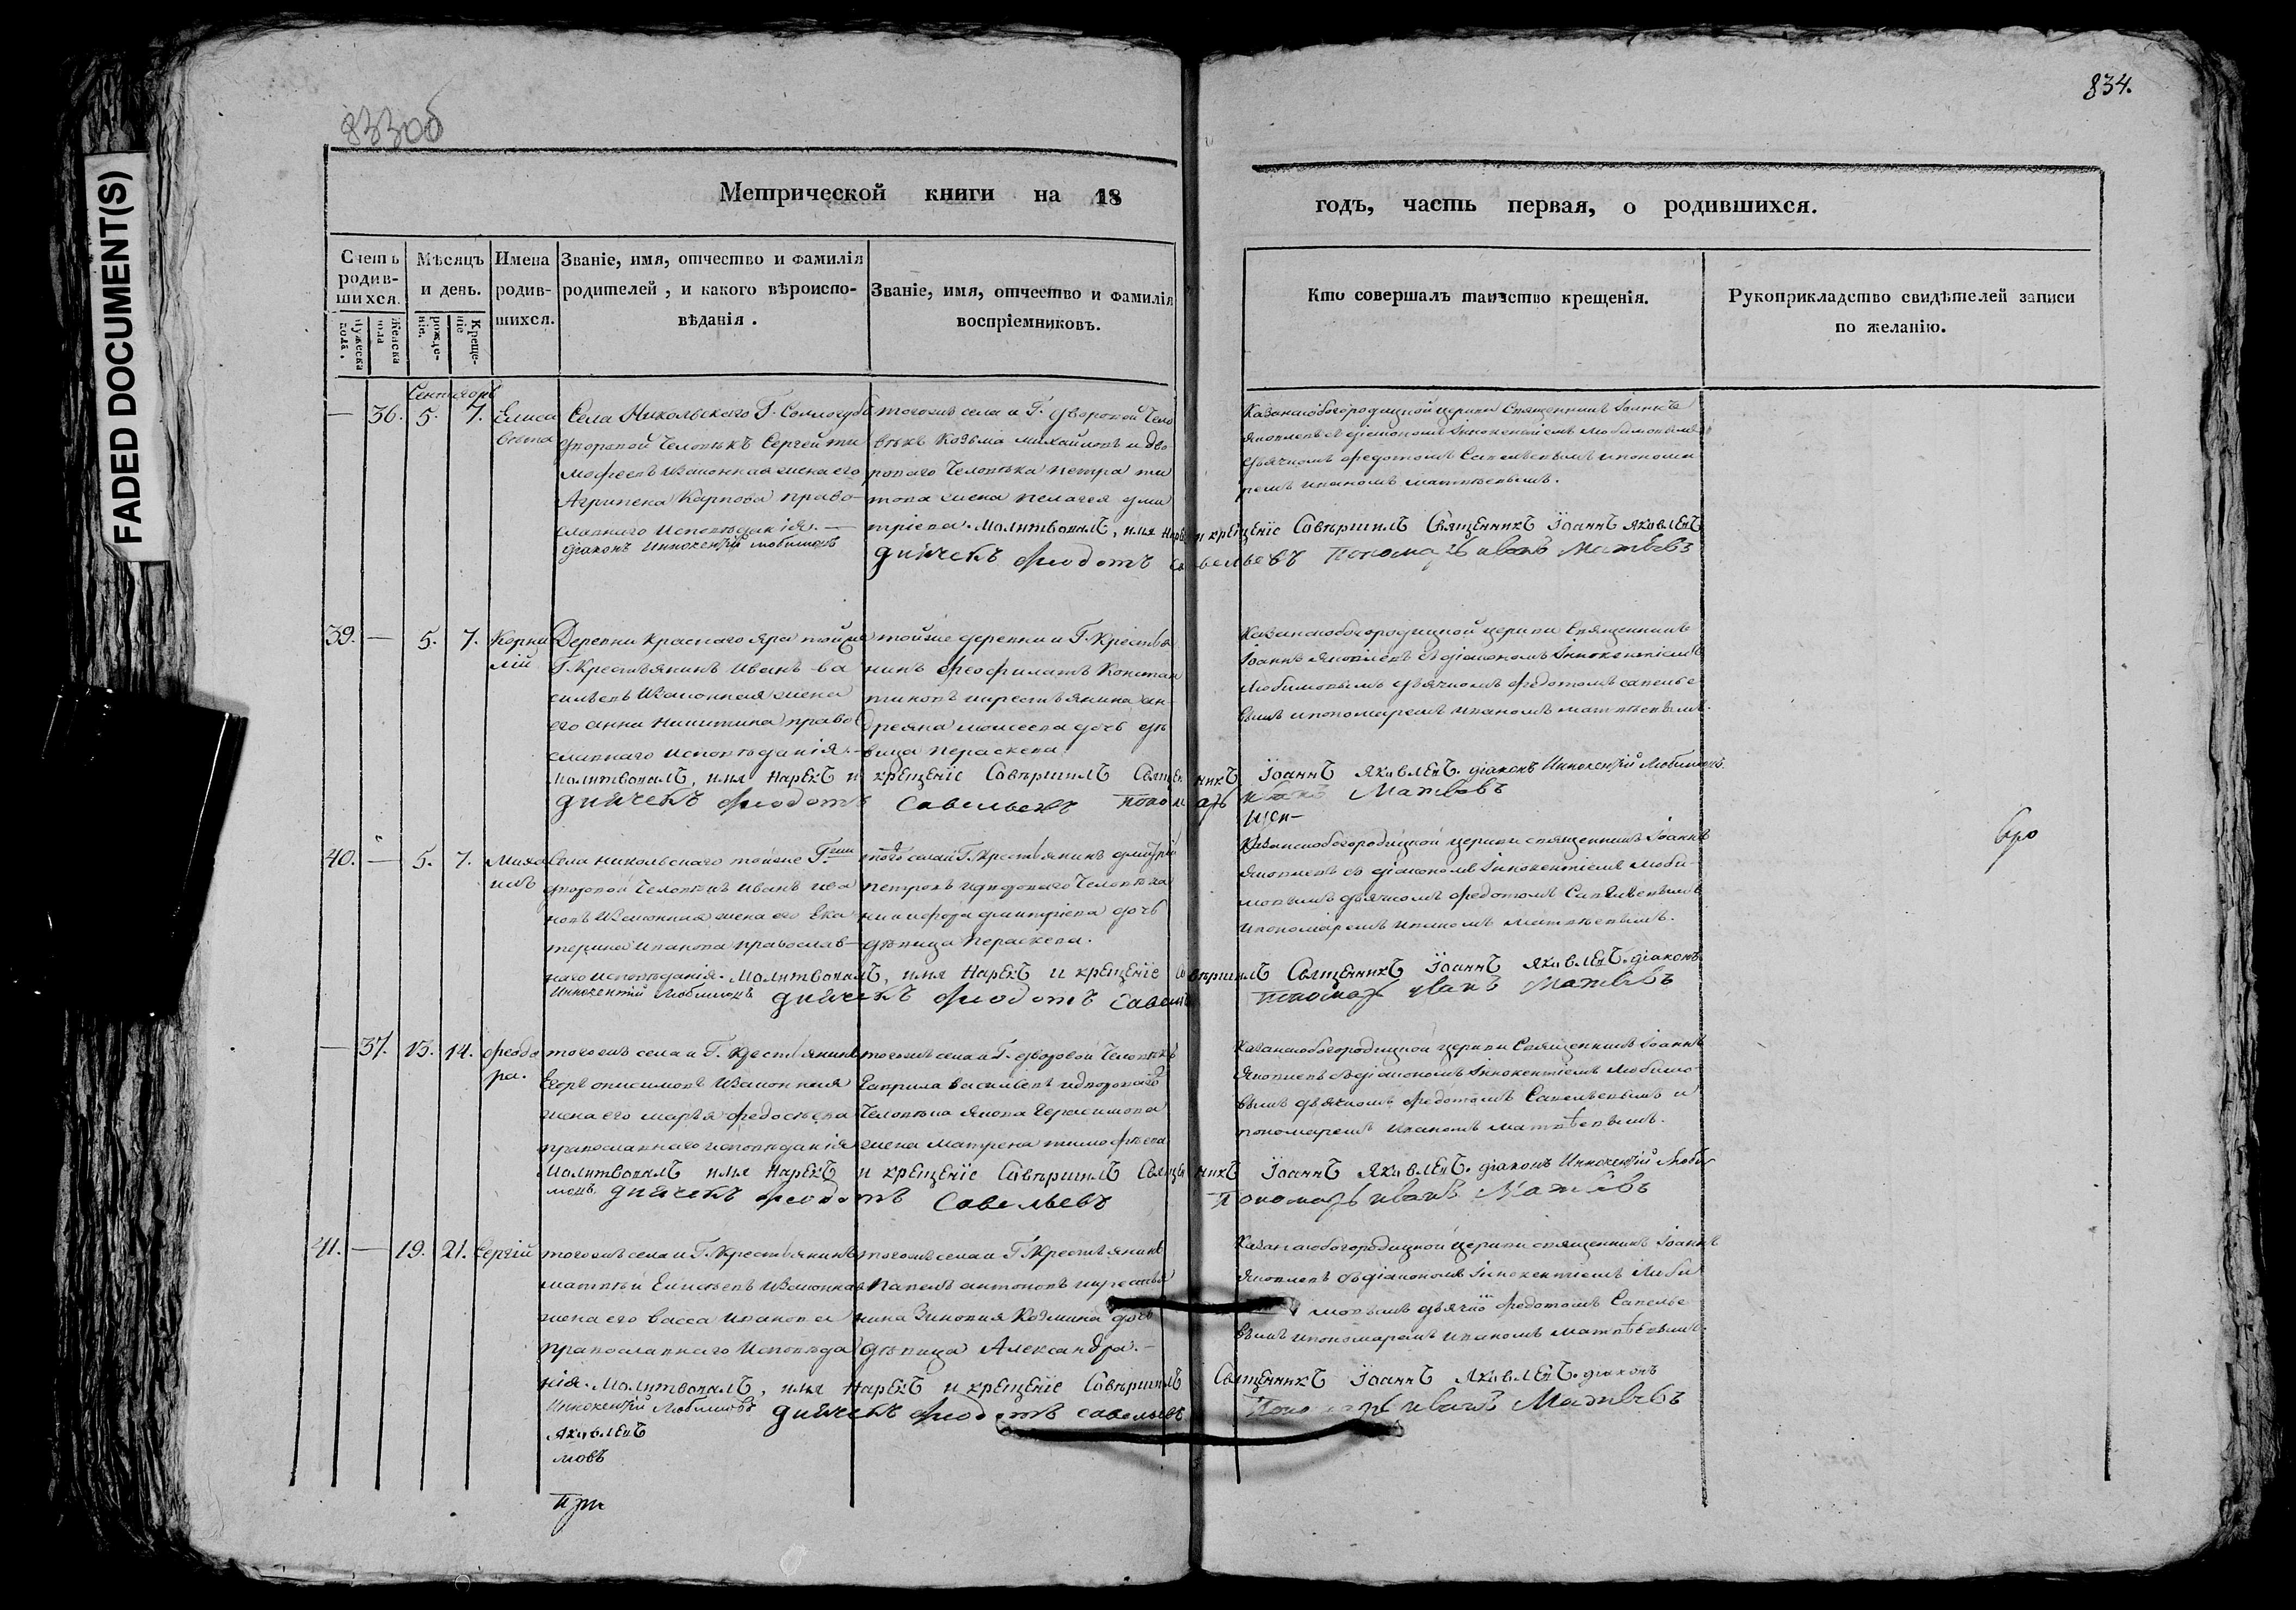 833об
834.
FADED DOCUMENT(S)
Метрической книги на 18
годъ, часть первая, о родившихся.
Счетъ родив-шихся.
Мужеска пола.
Женска пола
Мѣсяцъ и день.
рожде-нія.
Креще-нія
Имена родив-шихся.
Званіе, имя, отчество и фамилія
родителей, и какого вѣроиспо-
вѣданія.
Званіе, имя, отчество и фамилія
воспріемниковъ.
Кто совершалъ таинство крещенія.
Рукоприкладство свидѣтелей записи
по желанію.
Сентябрь
— 36. 5. 7. Елиса
вѣта
Села Никольскаго Г. Соллогуба
дворовой Человѣкъ Сергей ти
мофеевъ Изаконная жена его
Агрипена Карпова право-
славнаго Исповѣданія. —
тогожъ села и Г. дворовой Чело
вѣкъ Козьма михайловъ и дво
роваго Человѣка петра ти
това жена пелагея дми
тріева.
Казанскобогородицкой церкви Священникъ Іоаннъ
Яковлевъ съ діакономъ Іннокентіемъ Любимовымъ
дьячкомъ Федотомъ Савельевымъ ипонома
ремъ иваномъ матвѣевымъ.
Молитвовалъ, имя Нарекъ и крещеніе Совершилъ Священникъ Іоаннъ Яковлевъ
діаконъ Иннокентій Любимовъ
дьячекъ Феодотъ Савельевъ Пономарь иванъ Матвѣевъ
39. — 5. 7. Корни
лій
Деревни краснаго яра тойже
Г. Крестьянинъ Иванъ ва
сильевъ Изаконная жена
его анна никитина право
славнаго исповѣданія. —
тойже деревни и Г. Крестья
нинъ Феофилатъ Констан
тиновъ икрестьянина ан-
дреяна моисеева дочь дѣ
вица параскева.
Казанскобогородицкой церкви Священникъ
Іоаннъ Яковлевъ съ діакономъ Іннокентіемъ
Любимовымъ дьячкомъ Федотомъ савелье
вымъ ипономаремъ иваномъ матвѣевымъ.
Молитвовалъ, имя Нарекъ и крещеніе Совершилъ Священникъ Іоаннъ Яковлевъ. діаконъ Иннокентій Любимовъ.
дьячекъ Феодотъ Савельевъ Пономарь иванъ Матвѣевъ
40. — 5. 7. Миха
илъ
Села никольскаго тойже Г.жи
дворовой Человѣкъ Иванъ ива
новъ Изаконная жена его Ека
терина иванова православ-
наго исповѣданія.
тогоже села и Г. Крестьянинъ дмитрій
петровъ идвороваго Человѣка
никифора дмитріева дочь
дѣвица параскева.
Казанскобогородицкой церкви священникъ Іоаннъ
Яковлевъ съ діакономъ Іннокентіемъ люби-
мовымъ дьячкомъ Федотомъ Савельевымъ
ипономаремъ иваномъ матвѣевымъ.
Молитвовалъ, имя Нарекъ и крещеніе Совершилъ Священникъ Іоаннъ Яковлевъ. діаконъ
Иннокентій Любимовъ дьячекъ Феодотъ Савельевъ Пономарь иванъ Матвѣевъ
— 37. 13. 14. Феодо
ра.
тогожъ села и Г. Крестьянинъ
Егоръ онисимовъ Изаконная
жена его марья Федосѣева
православнаго исповѣданія
тогожъ села и Г. дворовой Человѣкъ
Гаврила васильевъ идвороваго
Человѣка якова герасимова
жена матрена тимофѣева
Казанскобогородицкой церкви Священникъ Іоаннъ
Яковлевъ съ діакономъ Іннокентіемъ Любимо
вымъ дьячкомъ Федотомъ Савельевымъ и
пономаремъ иваномъ матвѣевымъ.
Молитвовалъ имя Нарекъ и крещеніе Совершилъ Священникъ Іоаннъ Яковлевъ. діаконъ Иннокентій Люби
мовъ дьячекъ Феодотъ Савельевъ Пономарь иванъ Матвѣевъ
41. — 19. 21. Сергій
тогожъ села и Г. Крестьянинъ
матвѣй Елисѣевъ Изаконная
жена его васса иванова
православнаго Исповѣда
нія.
тогожъ села и Г. Крестьянинъ
павелъ антоновъ икрестья
нина Зиновия Козмина дочь
дѣвица Александра. —
Казанскобогородицкой церкви священникъ Іоаннъ
Яковлевъ съ діакономъ Іннокентіемъ Люби
мовымъ дьячкомъ Федотомъ Савелье
вымъ ипономаремъ иваномъ матвѣевымъ.
Молитвовалъ, имя Нарекъ и крещеніе Совершилъ Священникъ Іоаннъ Яковлевъ. діаконъ
Иннокентій Любимовъ дьячекъ Феодотъ савельевъ Пономарь иванъ Матвѣевъ
Яковлевъ
мовъ